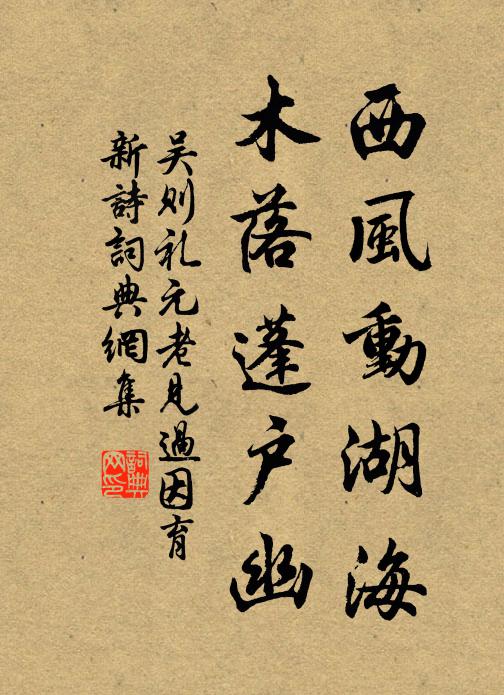 西風動湖海
木落蓬户幽
吴则礼元老見過因育
新詩詞典網集
詞典
网印